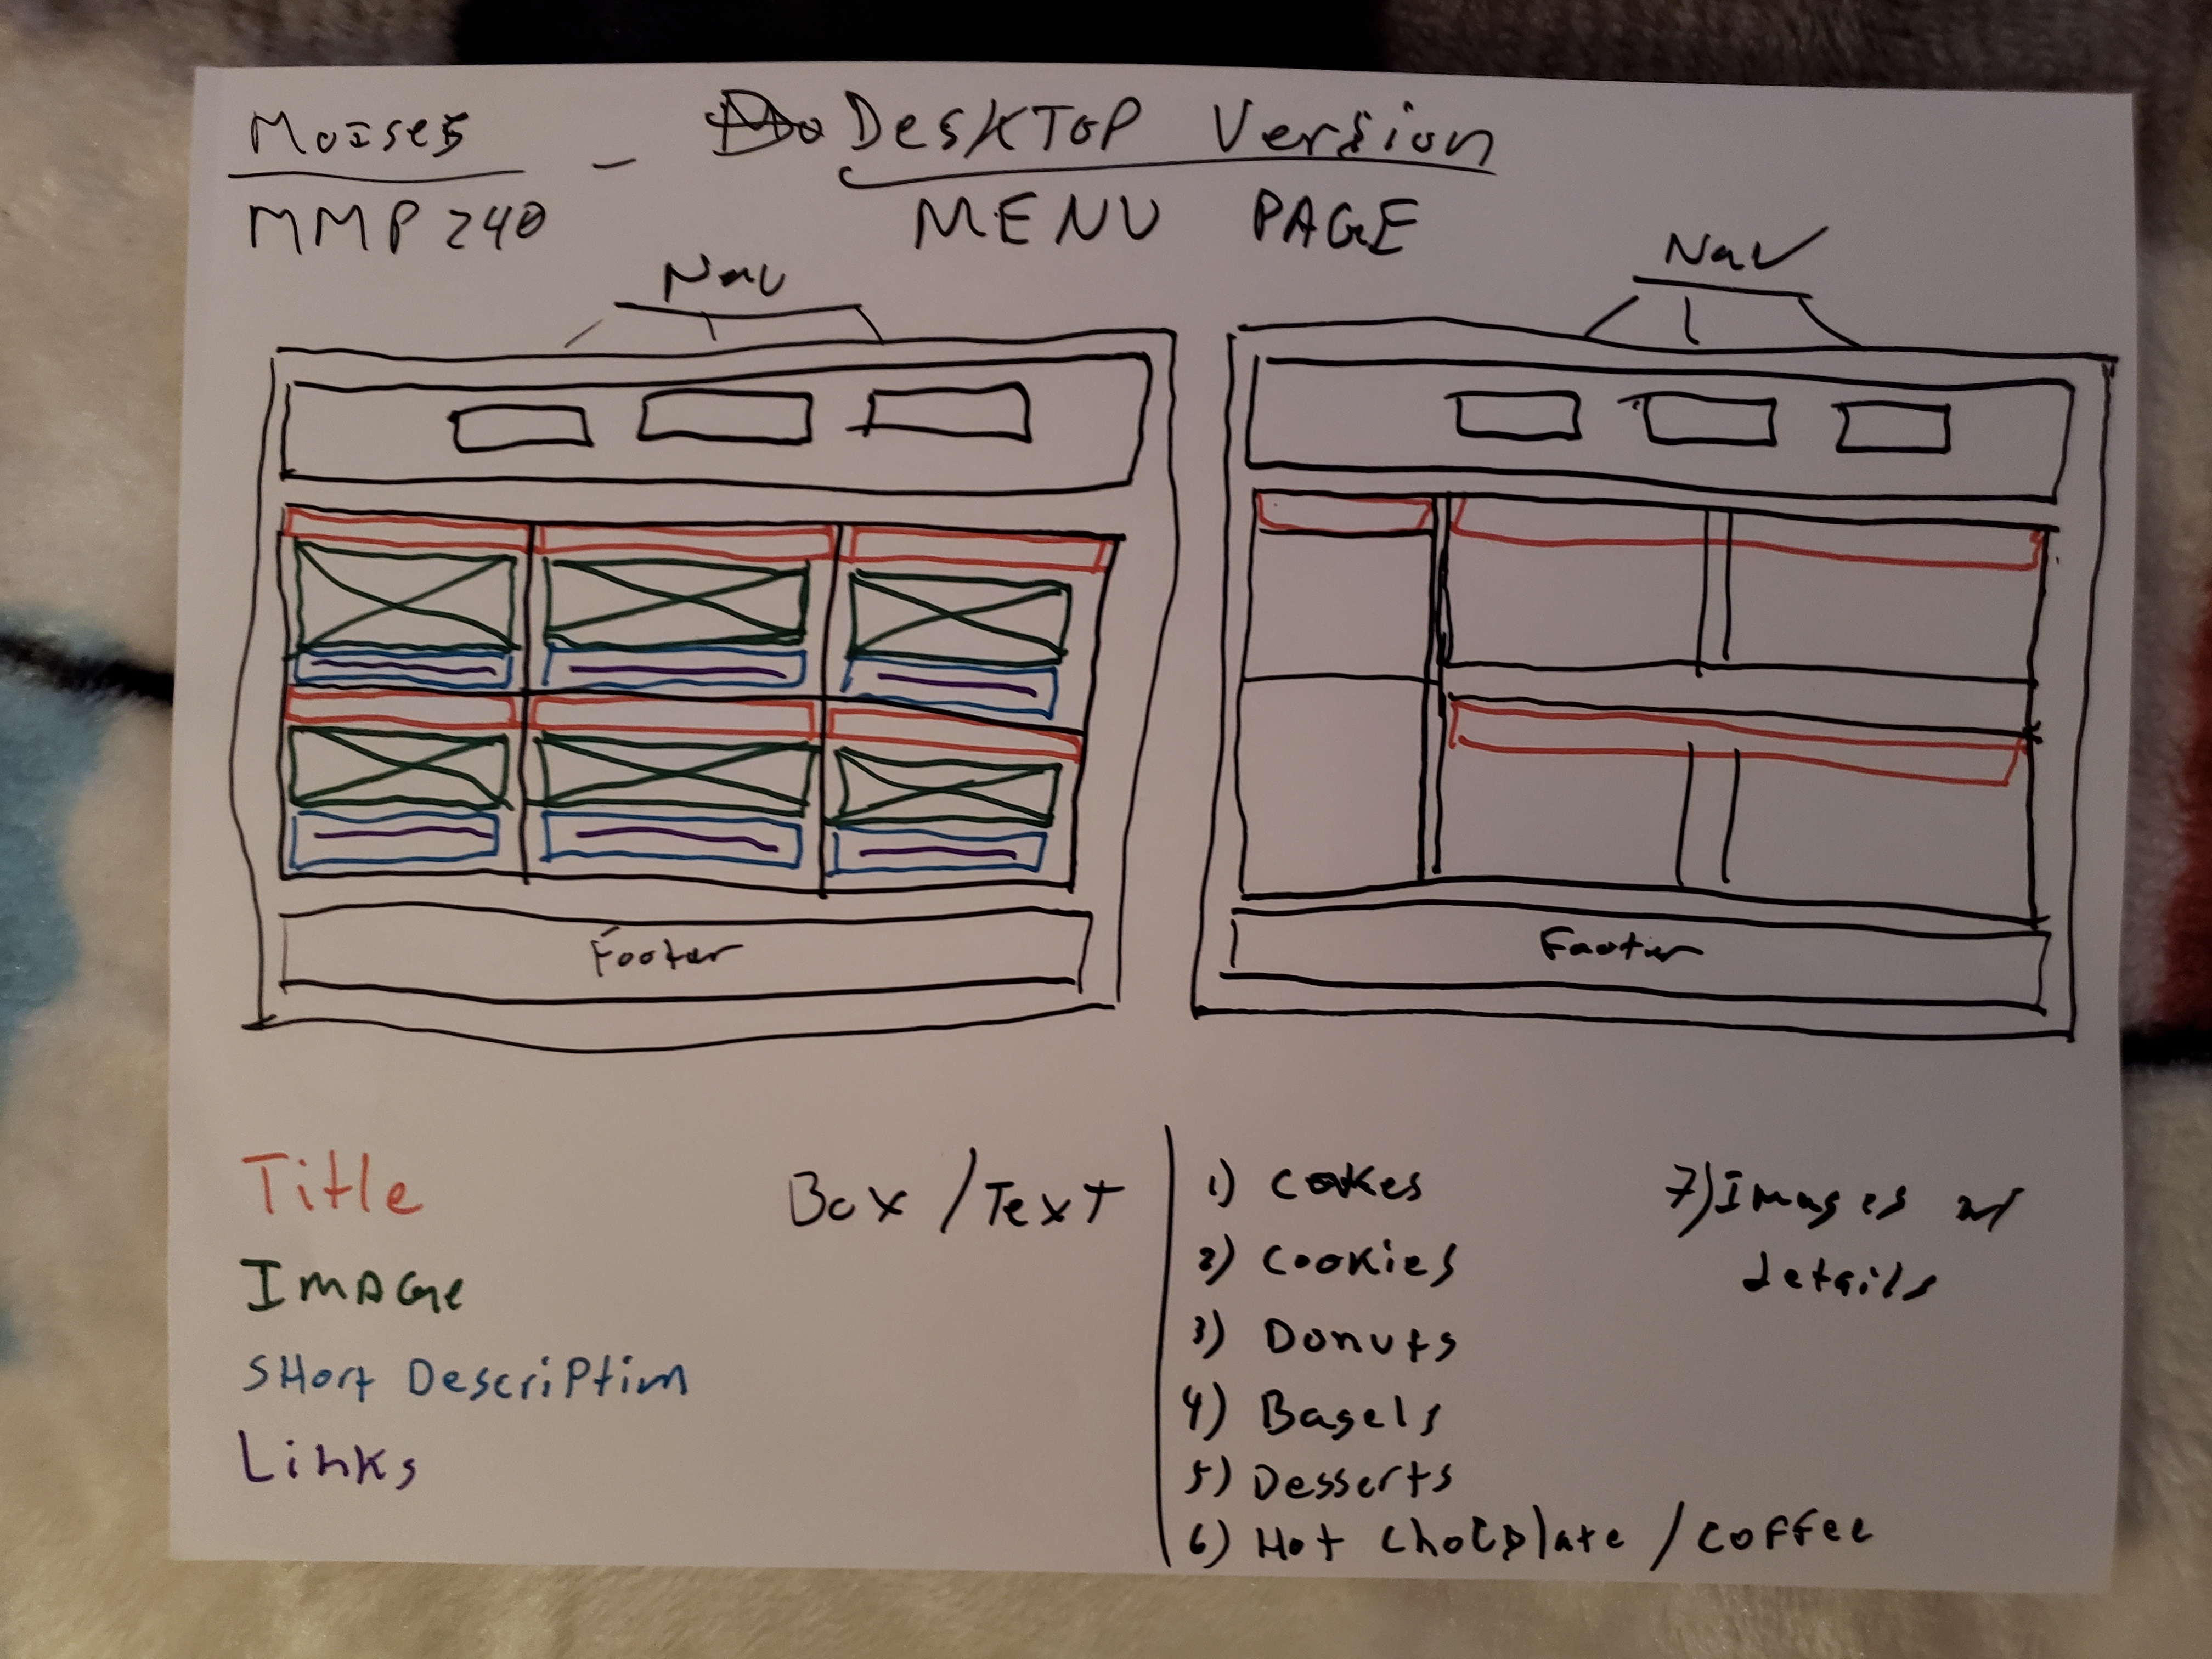 Moises - Desktop Version
MMP 240
MENU PAGE
Nav
Nav
Footer
Footer
Title
Image
Short Description
Links
Box / Text
1) Cakes
2) Cookies
3) Donuts
4) Bagels
5) Desserts
6) Hot Chocolate / Coffee
7) Images w/
details